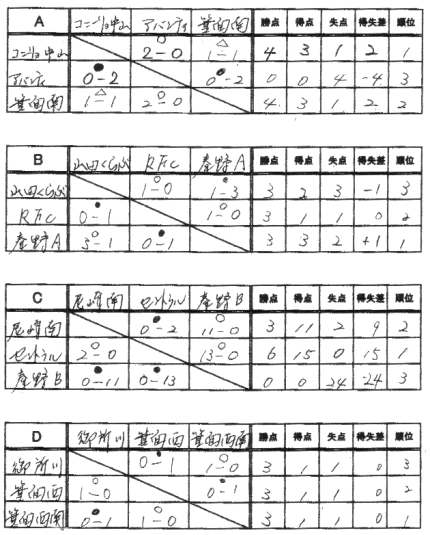 A コニリョ中山 アバンティ 箕面南 勝点 得点 失点 得失差 順位
コニリョ中山 ○ 2-0 △ 1-1 4 3 1 2 1
アバンティ ● 0-2 ● 0-2 0 0 4 -4 3
箕面南 △ 1-1 ○ 2-0 4 3 1 2 2
B 山田くらぶ RFC 秦野A 勝点 得点 失点 得失差 順位
山田くらぶ ○ 1-0 ● 1-3 3 2 3 -1 3
RFC ● 0-1 ○ 1-0 3 1 1 0 2
秦野A ○ 3-1 ● 0-1 3 3 2 +1 1
C 尼崎南 セントラル 秦野B 勝点 得点 失点 得失差 順位
尼崎南 ● 0-2 ○ 11-0 3 11 2 9 2
セントラル ○ 2-0 ○ 13-0 6 15 0 15 1
秦野B ● 0-11 ● 0-13 0 0 24 -24 3
D 御所川 箕面西 箕面西南 勝点 得点 失点 得失差 順位
御所川 ● 0-1 ○ 1-0 3 1 1 0 3
箕面西 ○ 1-0 ● 0-1 3 1 1 0 2
箕面西南 ● 0-1 ○ 1-0 3 1 1 0 1